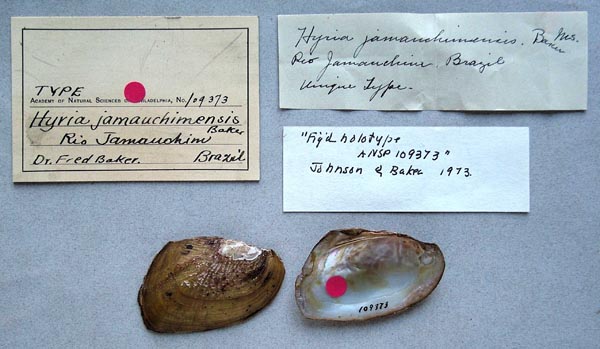 TYPE
ACADEMY OF NATURAL SCIENCES OF PHILADELPHIA, No. 109373
Hyria jamauchimensis
Baker
Rio Jamauchim
Dr. Fred Baker. Brazil
Hyria jamauchimensis. Baker Ms.
Rio Jamauchim, Brazil
Unique Type.
"Fig'd holotype
ANSP 109373"
Johnson & Baker 1973.
109373